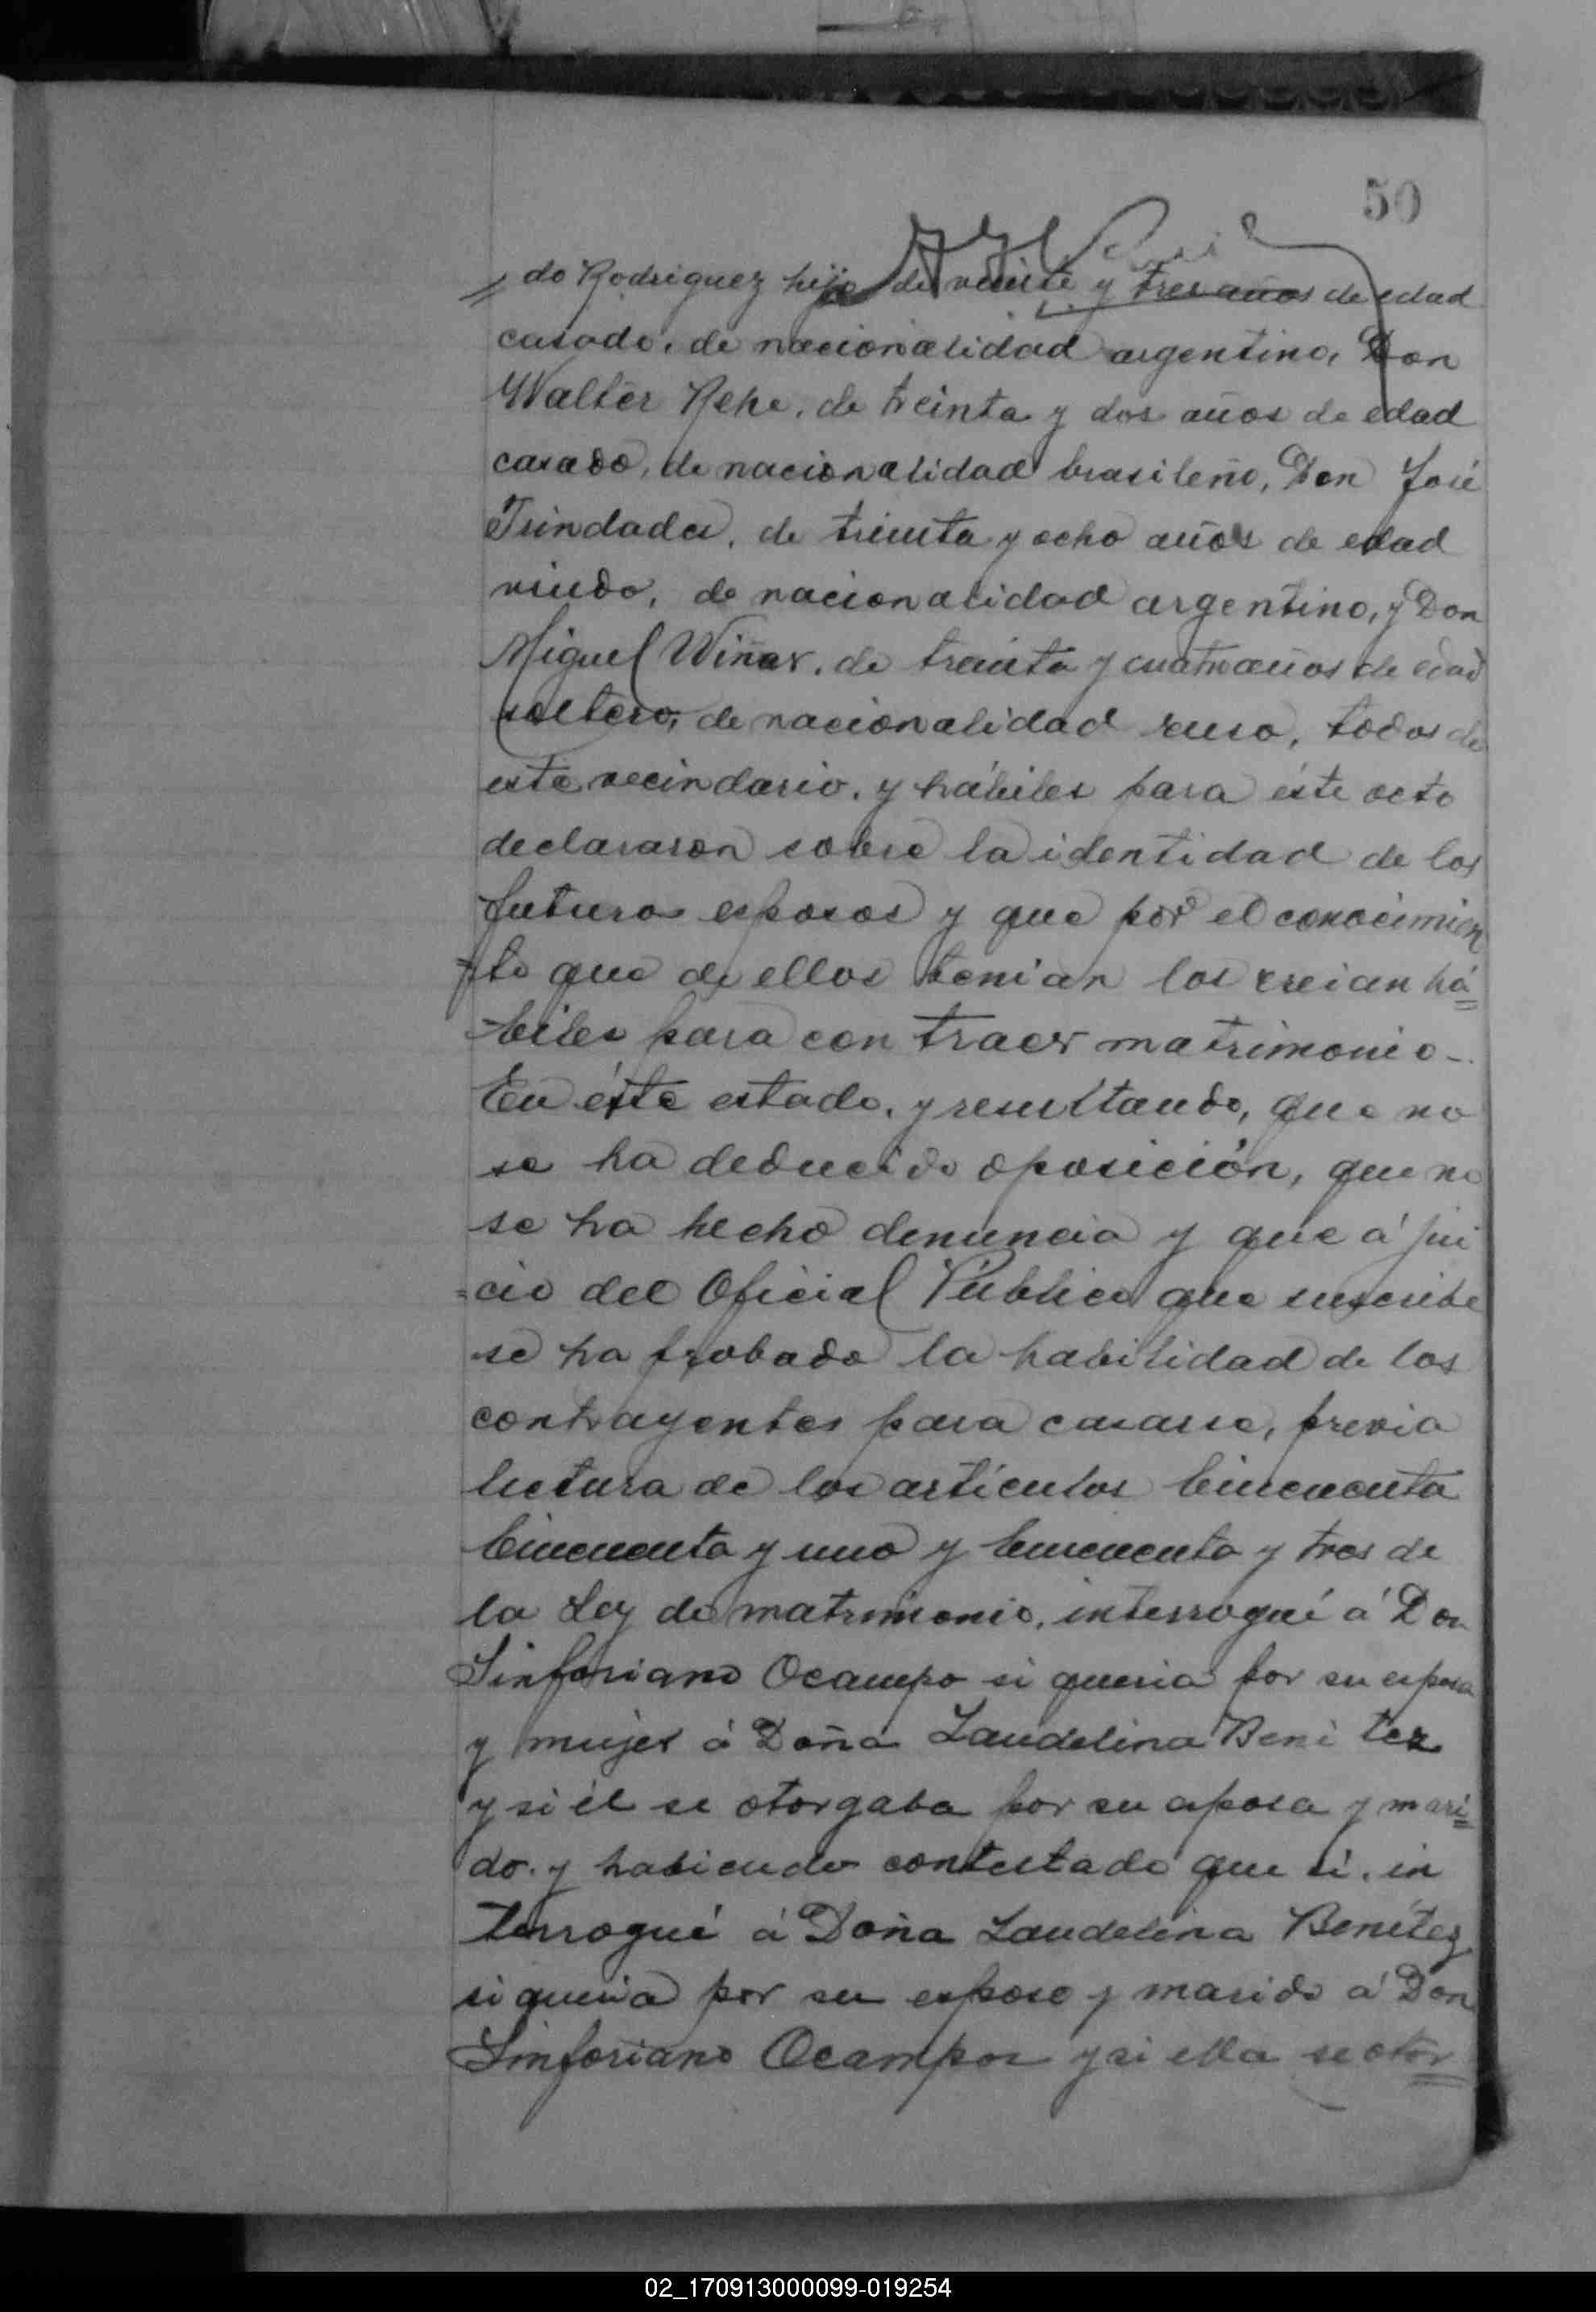 50
do Rodriguez hijo de veinte y tres años de edad
casado, de nacionalidad argentino, Don
Walter Rehe, de treinta y dos años de edad
casado, de nacionalidad brasileño, Don José
Trindade, de treinta y ocho años de edad
viudo, de nacionalidad argentino, y Don
Miguel Wiñar, de treinta y cuatro años de edad
soltero, de nacionalidad ruso, todos de
este vecindario, y hábiles para éste acto
declararon sobre la identidad de los
futuros esposos y que por el conocimien
to que de ellos tenian los creian há=
biles para contraer matrimonio-.
En éste estado, y resultando, que no
se ha deducido oposición, que no
se ha hecho denuncia y que á jui
=cio del Oficial Público que suscribe
se ha probado la habilidad de los
contrayentes para casarse, previa
lectura de los artículos Cincuenta
Cincuenta y uno y Cincuenta y tres de
la Ley de matrimonio, interrogué á Don
Sinforiano Ocampo si queria por su esposa
y mujer á Doña Laudelina Beni tez
y si él se otorgaba por su esposa y mari=
do. y habiendo contestado que si. in
terrogué á Doña Laudelina Benítez
si queria por su esposo y marido á Don
Sinforiano Ocampos y si ella se otor=
02_170913000099-019254